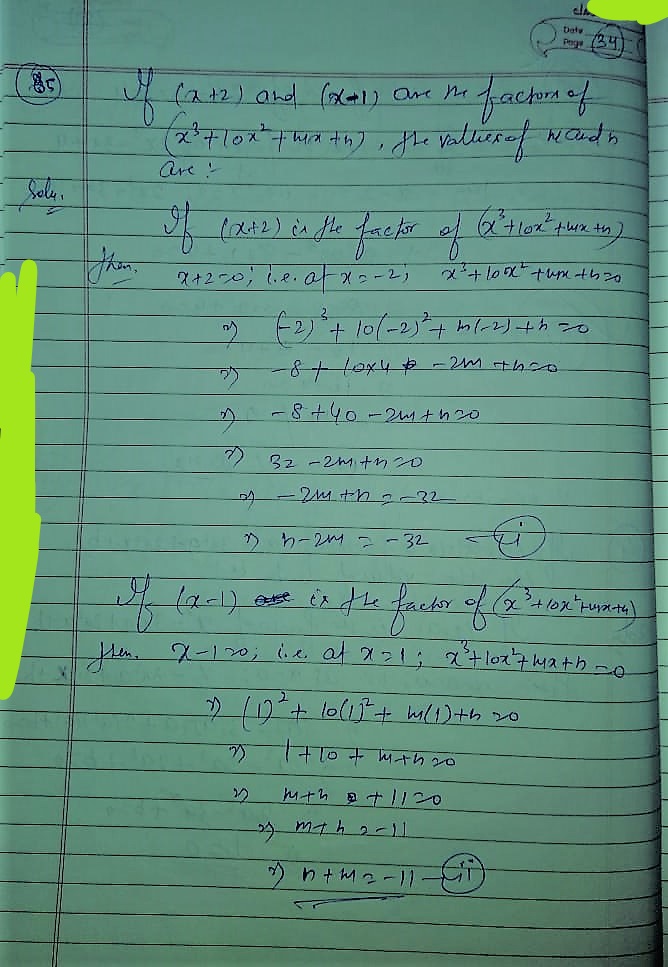 Date
Page 34
85
If (x+2) and (x-1) are the factors of
(x³+10x²+mx+n), the values of m and n
are :-
Soln.
If (x+2) is the factor of (x³+10x²+mx+n)
then. x+2=0; i.e. at x=-2; x³+10x²+mx+n=0
⇒ (-2)³+10(-2)²+m(-2)+n=0
⇒ -8+10x4 -2m+n=0
⇒ -8+40-2m+n=0
⇒ 32-2m+n=0
⇒ -2m+n=-32
⇒ n-2m=-32 —(i)
If (x-1) is the factor of (x³+10x²+mx+n)
then. x-1=0; i.e. at x=1; x³+10x²+mx+n=0
⇒ (1)²+10(1)²+m(1)+n=0
⇒ 1+10+m+n=0
⇒ m+n+11=0
⇒ m+n=-11
⇒ n+m=-11 —(ii)